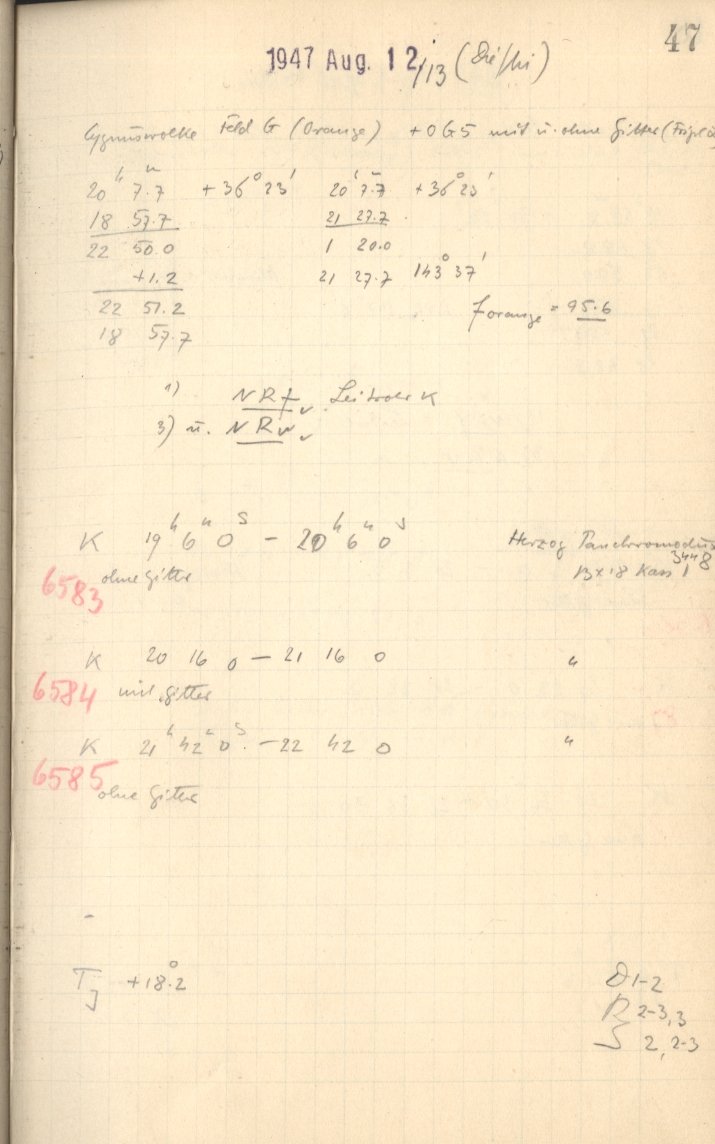 47
1947 Aug. 12./13
Cygnuswolke Feld G (Orange) + OG5 mit u. ohne Gitter
20h 7m.7 +36° 23' 20h 7m.7 +36° 23'
18 57.7 21 27.7
22 50.0 1 20.0
+1.2 21 27.7 143° 37'
22 51.2 f orange = 95.6
18 57.7
1) NRf Leitrohr K
3) u. NRw
K 19h 6m 0s – 20h 6m 0s Herzog Panchromodus
3448
6583 ohne Gitter 13×18 Kass 1
K 20 16 0 – 21 16 0 "
6584 mit Gitter
K 21h 42m 0s – 22 42 0 "
6585 ohne Gitter
TJ +18°.2 D 1-2
R 2-3, 3
S 2, 2-3